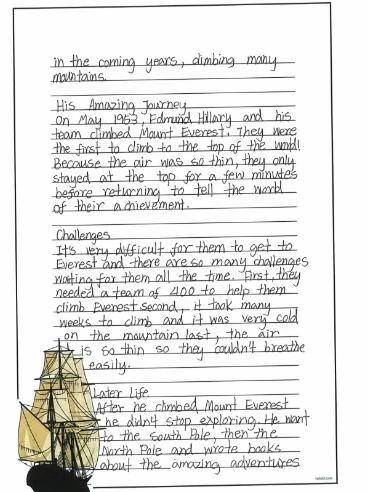 in the coming years, climbing many
mountains.
His Amazing Journey
On May 1953, Edmund Hillary and his
team climbed Mount Everest. They were
the first to climb to the top of the world!
Because the air was so thin, they only
stayed at the top for a few minutes
before returning to tell the world
of their achievement.
Challenges
It's very difficult for them to get to
Everest and there are so many challenges
waiting for them all the time. First, they
needed a team of 400 to help them
climb Everest second, it took many
weeks to climb and it was very cold
on the mountain last, the air
is so thin so they couldn't breathe
easily.
Later Life
After he climbed Mount Everest
he didn't stop exploring. He want
to the South Pole, then the
North Pole and wrote books
about the amazing adventures